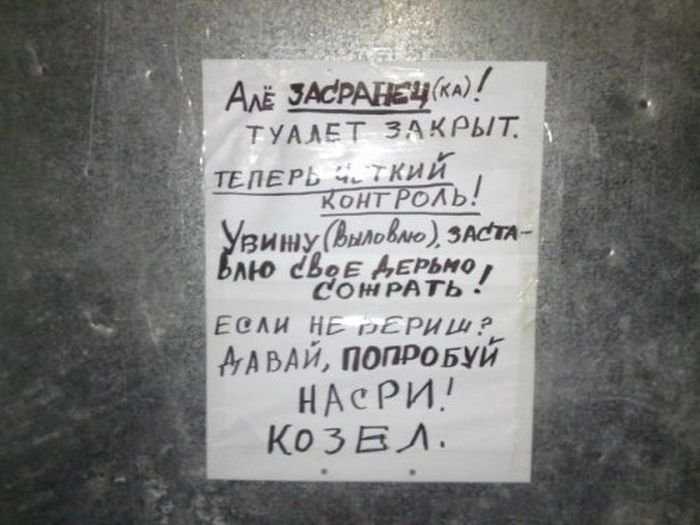 Алё ЗАСРАНЕЦ(КА)!
ТУАЛЕТ ЗАКРЫТ.
ТЕПЕРЬ ЧЕТКИЙ
КОНТРОЛЬ!
Увижу (Выловлю), ЗАСТА-
влю свое дерьмо
СОЖРАТЬ!
ЕСЛИ НЕ ВЕРИШ?
ДАВАЙ, ПОПРОБУЙ
НАСРИ!
КОЗЕЛ.